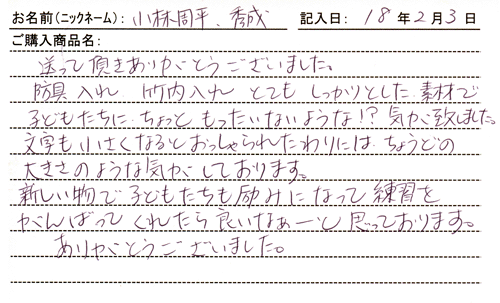 お名前(ニックネーム): 小林周平、秀成 記入日: 18 年 2 月 3 日
ご購入商品名:
送って頂きありがとうございました。
防具入れ 竹内入れ とても しっかりとした 素材で
子どもたちに ちょっと もったいないような!? 気が致しました。
文字も小さくなるとおっしゃられたわりには ちょうどの
大きさのような気がしております。
新しい物で子どもたちも励みになって 練習を
がんばって くれたら良いなぁーと 思っております。
ありがとうございました。